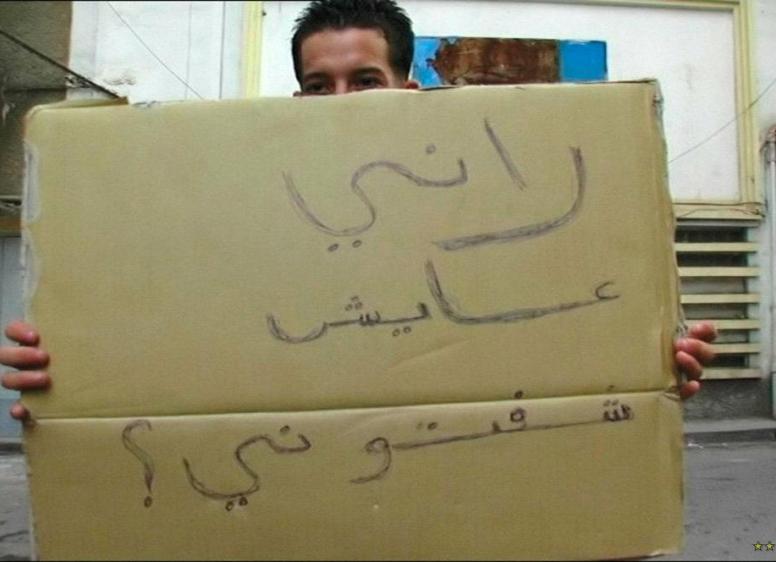 راني
عايش
شفتوني؟